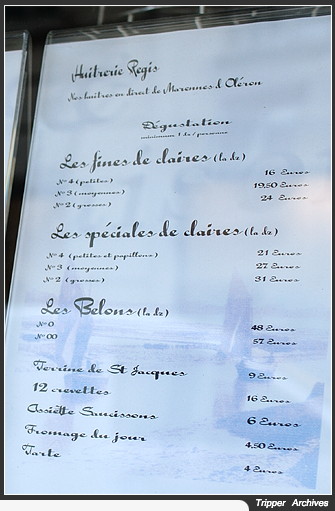 Huitrerie Regis
Nos huîtres en direct de Marennes d'Oléron
Dégustation
minimum 1 dz / personne
Les fines de claires (la dz)
N° 4 (petites) 16 Euros
N° 3 (moyennes) 19,50 Euros
N° 2 (grosses) 24 Euros
Les spéciales de claires (la dz)
N° 4 (petites et papillons) 21 Euros
N° 3 (moyennes) 27 Euros
N° 2 (grosses) 31 Euros
Les Belons (la dz)
N° 0 48 Euros
N° 00 57 Euros
Terrine de St Jacques 9 Euros
12 crevettes 16 Euros
Assiette Saucissons 6 Euros
Fromage du jour 4,50 Euros
Tarte 4 Euros
Tripper Archives